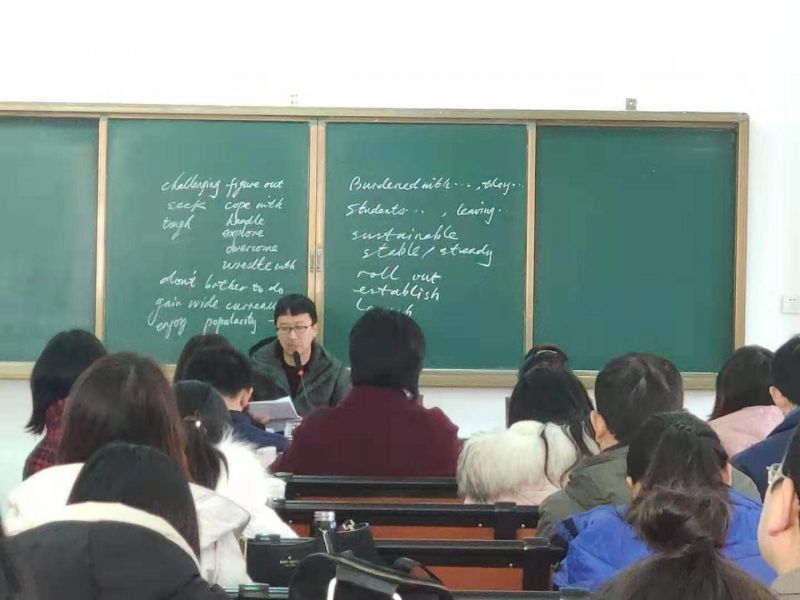 challenging figure out
seek cope with
tough handle
explore
overcome
wrestle with
don't bother to do
gain wide
enjoy popularity
Burdened with ..., they...
Students ..., leaving.
sustainable
stable / steady
roll out
establish